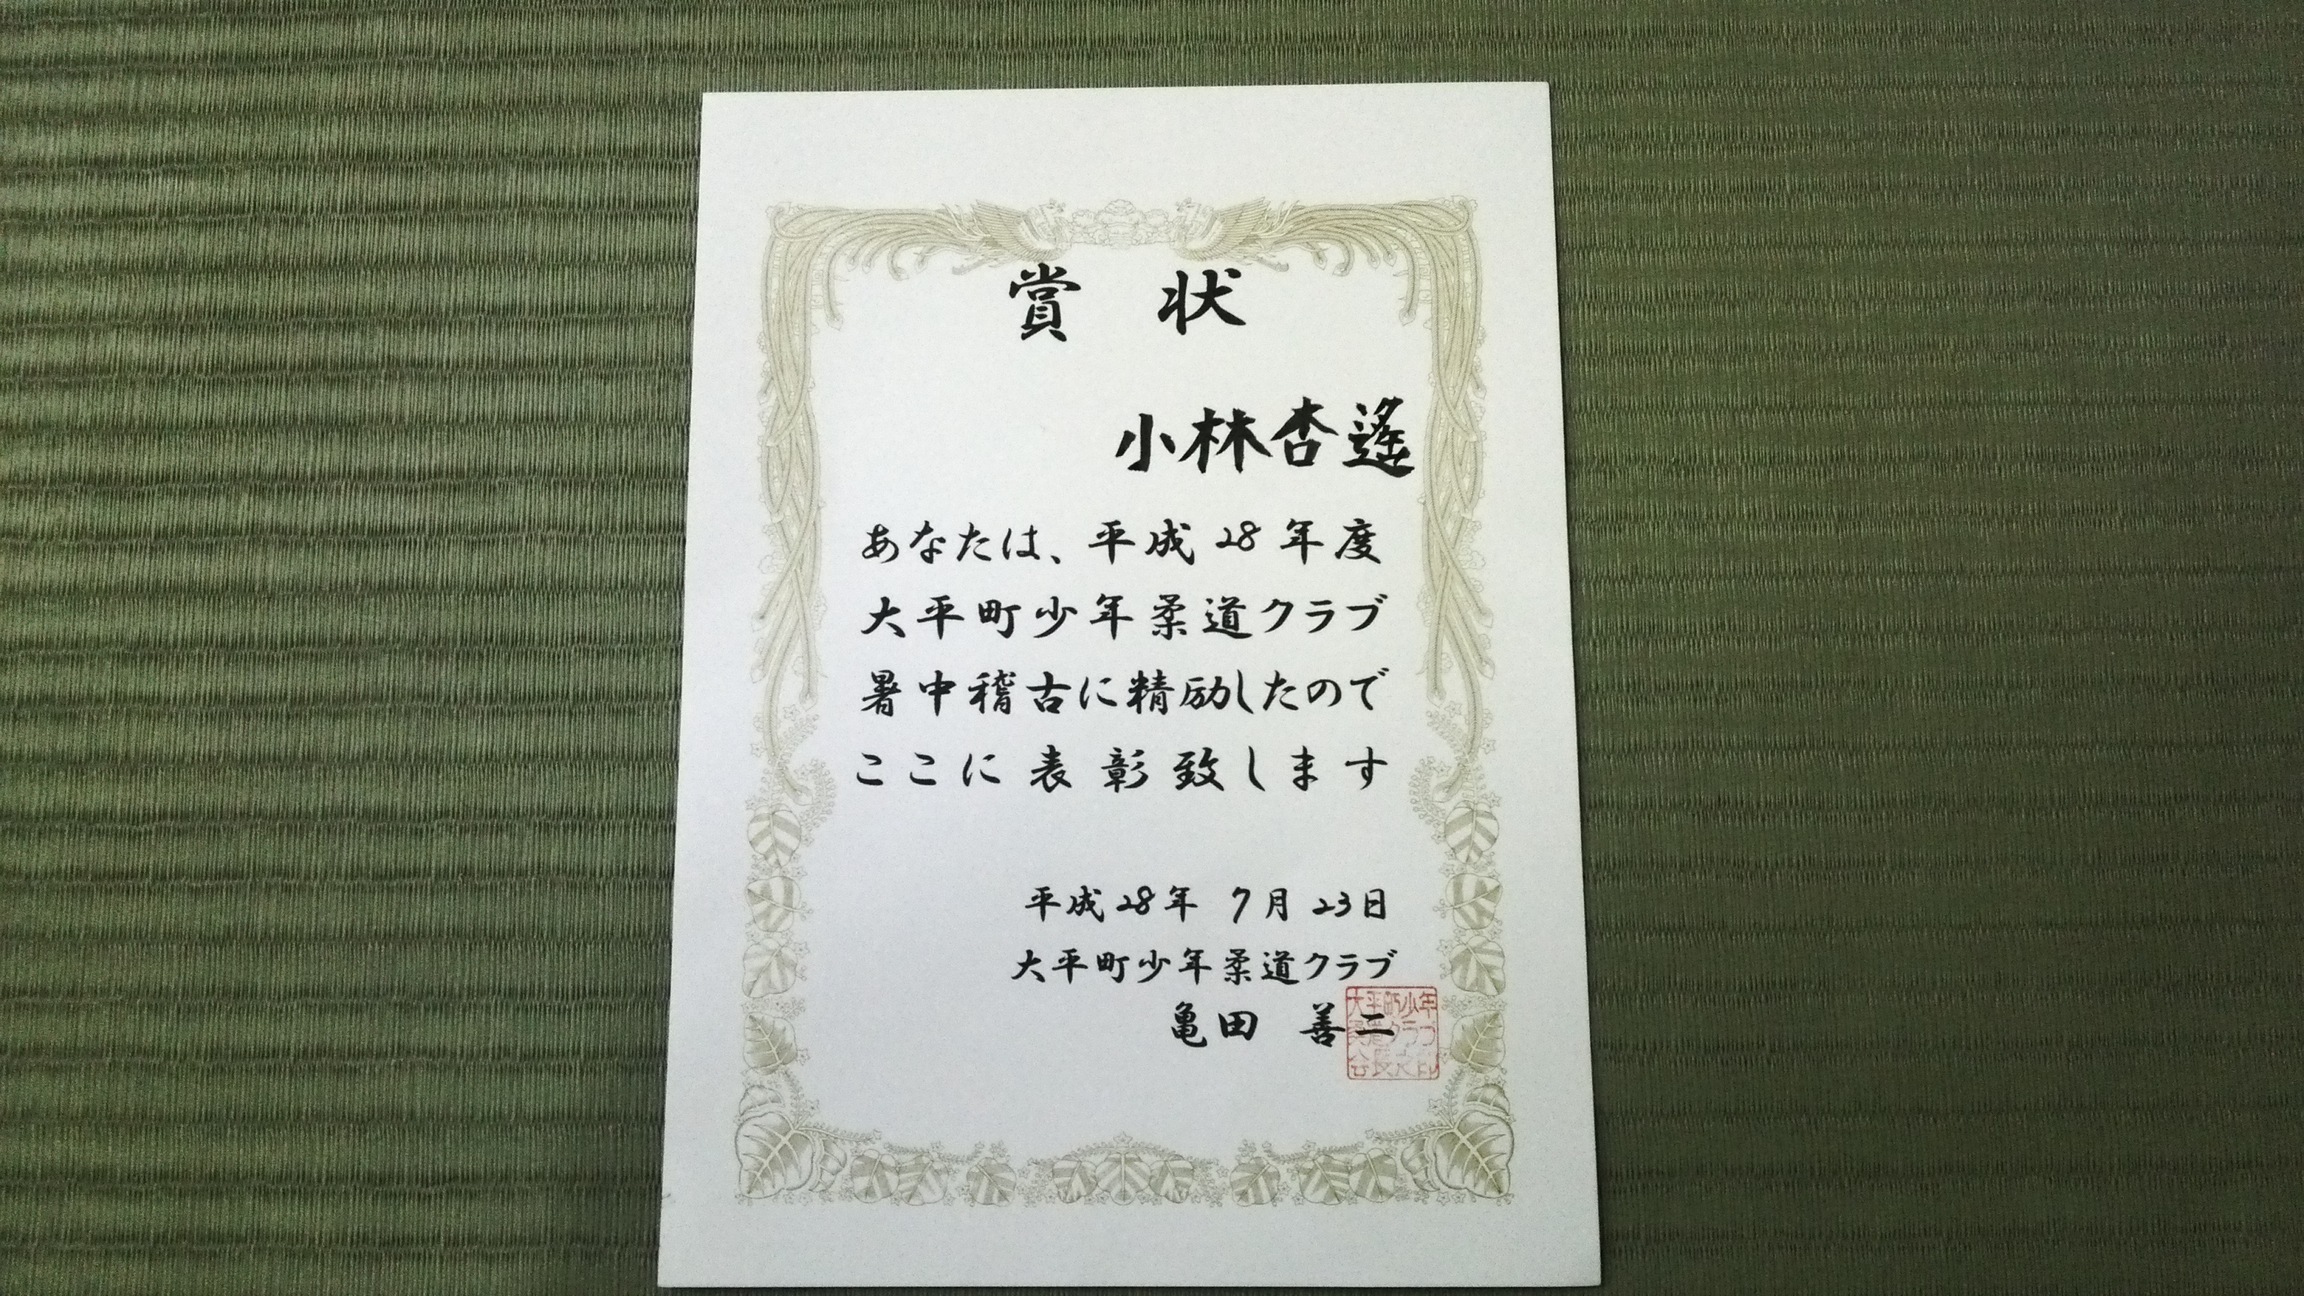 賞 状
小林杏遥
あなたは、平成28年度
大平町少年柔道クラブ
暑中稽古に精励したので
ここに表彰致します
平成28年 7月 23日
大平町少年柔道クラブ
亀田 善二
大平町少年
柔道クラブ
会長之印